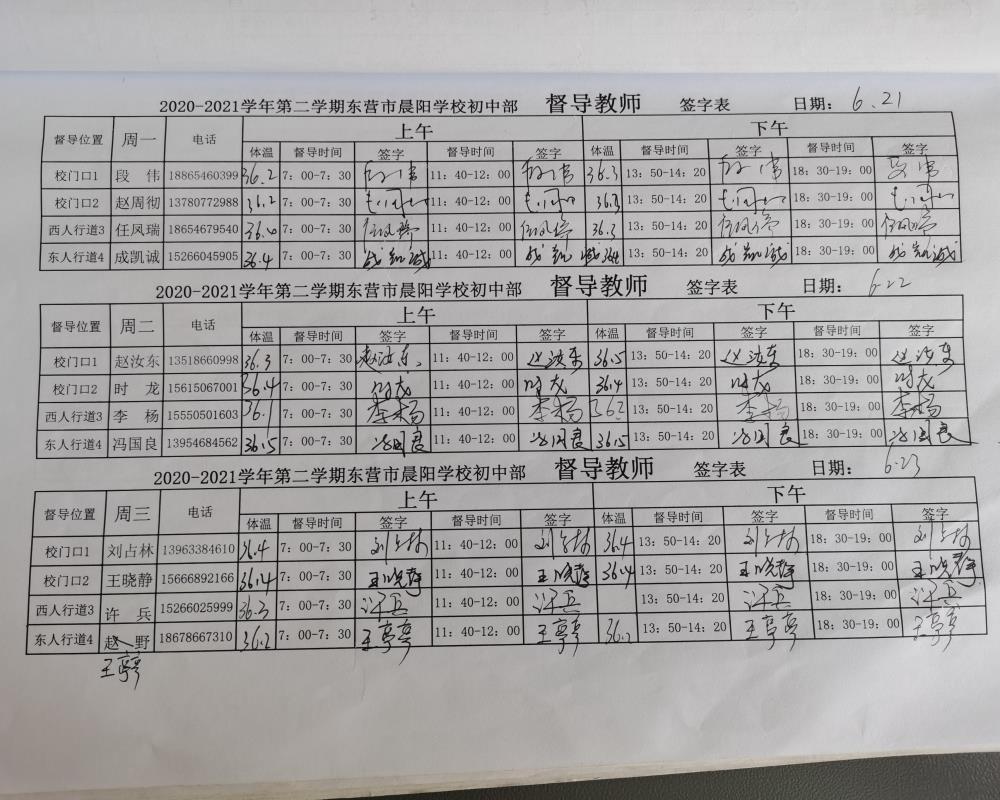 2020-2021学年第二学期东营市晨阳学校初中部 督导教师 签字表 日期： 6.21
督导位置 周一 电话 上午 下午
体温 督导时间 签字 督导时间 签字 体温 督导时间 签字 督导时间 签字
校门口1 段 伟 18865460399 36.2 7：00-7：30 段伟 11：40-12：00 段伟 36.3 13：50-14：20 段伟 18：30-19：00 段伟
校门口2 赵周彻 13780772988 36.2 7：00-7：30 11：40-12：00 36.3 13：50-14：20 18：30-19：00
西人行道3 任凤瑞 18654679540 36.0 7：00-7：30 11：40-12：00 36.3 13：50-14：20 18：30-19：00
东人行道4 成凯诚 15266045905 36.4 7：00-7：30 成凯诚 11：40-12：00 成凯诚 13：50-14：20 成凯诚 18：30-19：00 成凯诚
2020-2021学年第二学期东营市晨阳学校初中部 督导教师 签字表 日期： 6.22
督导位置 周二 电话 上午 下午
体温 督导时间 签字 督导时间 签字 体温 督导时间 签字 督导时间 签字
校门口1 赵汝东 13518660998 36.3 7：00-7：30 赵汝东 11：40-12：00 赵汝东 36.5 13：50-14：20 赵汝东 18：30-19：00 赵汝东
校门口2 时 龙 15615067001 36.4 7：00-7：30 时龙 11：40-12：00 时龙 36.4 13：50-14：20 时龙 18：30-19：00 时龙
西人行道3 李 杨 15550501603 36.1 7：00-7：30 李杨 11：40-12：00 李杨 362 13：50-14：20 李杨 18：30-19：00 李杨
东人行道4 冯国良 13954684562 36.5 7：00-7：30 冯国良 11：40-12：00 冯国良 36.5 13：50-14：20 冯国良 18：30-19：00 冯国良
2020-2021学年第二学期东营市晨阳学校初中部 督导教师 签字表 日期： 6.23
督导位置 周三 电话 上午 下午
体温 督导时间 签字 督导时间 签字 体温 督导时间 签字 督导时间 签字
校门口1 刘占林 13963384610 36.4 7：00-7：30 刘占林 11：40-12：00 刘占林 36.4 13：50-14：20 刘占林 18：30-19：00 刘占林
校门口2 王晓静 15666892166 36.4 7：00-7：30 王晓静 11：40-12：00 王晓静 36.4 13：50-14：20 王晓静 18：30-19：00 王晓静
西人行道3 许 兵 15266025999 36.3 7：00-7：30 许兵 11：40-12：00 许兵 13：50-14：20 许兵 18：30-19：00 许兵
东人行道4 赵一野 18678667310 36.2 7：00-7：30 王亭亭 11：40-12：00 王亭亭 36.2 13：50-14：20 王亭亭 18：30-19：00 王亭亭
王亭亭